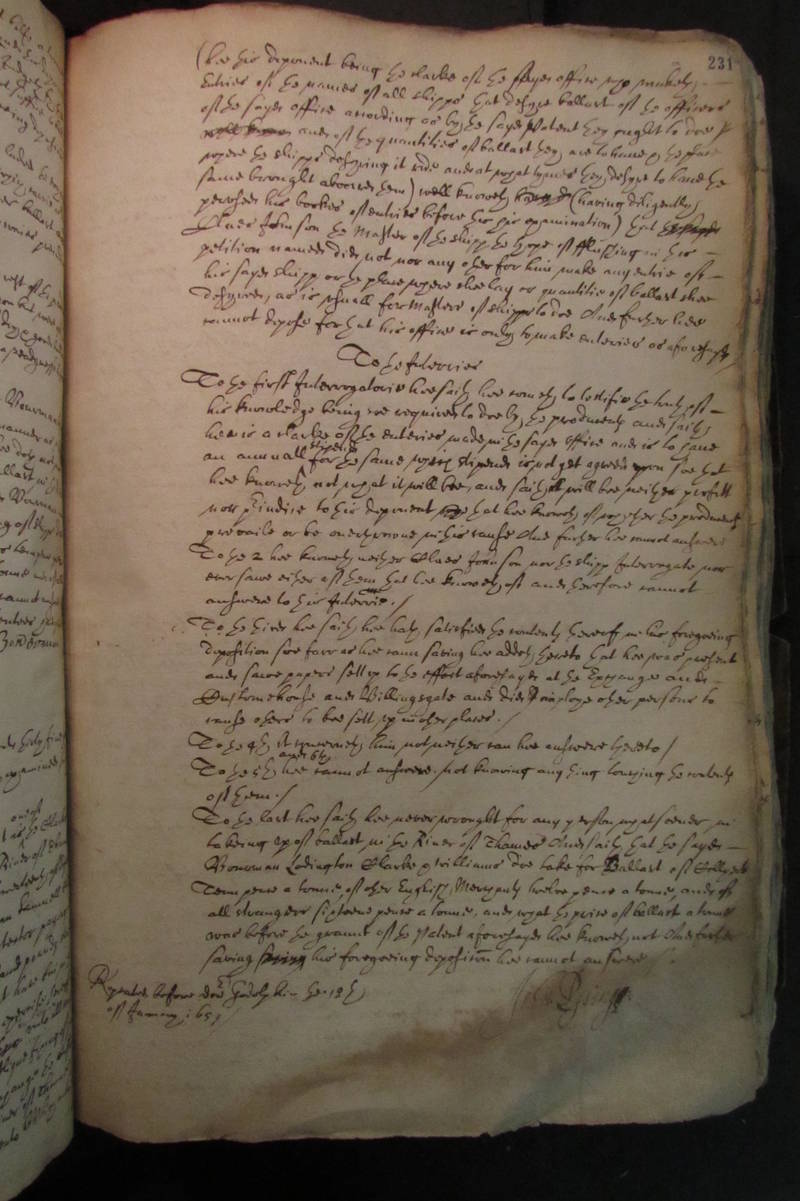 231
(hee this deponent being the clarke of the sayd office who maketh
Entries of the names of all shipps that desyre ballast of the officers
of the sayd office according as by the sayd Patent they ought to doe
and of the quantities of ballast they are to have, the place
where the shipps desyring it ride and at what tymes they desyre to have the
same brought aboard them) well knoweth (having diligently
perused his bookes of entries before this his examination) that
Claes Johnson the Master of the shipp the Hope of Flushing in this
petition named did not nor any other for him make any entrie of
his sayd shipp or the place where shee lay or quantitie of ballast shee
desyred, as is usuall for Masters of shipps to doe And further hee
cannot depose for that his office is only to make enteries as aforesayd
To the Interries
To the first Interrogatorie hee saith hee cometh to testifie the truth of
his knowledge being required to doe by the producents and saith
hee is a clarke of the enteries made in the sayd office and is to have
an annuall stipend for the same which stipend is not yet agreed upon soe that
hee knoweth not what it will bee, and saith it will bee neither profitt
nor preiudice to this deponent that hee knoweth of whether the producents
prevaile or be overthrowne in this cause And further hee cannot answere
To the 2 hee knoweth neither Claes Johnson nor the shipp Interrogate nor
ever sawe either of them that hee knoweth of and therefore cannot
answere to this Interrie. /
To the third hee saith hee hath satisfied the contents hereof in his foregoeing
deposition soe farr as hee cann saving hee addeth hereto that hee was present
and sawe papers sett up to the effect aforesayd at the Exchange and
Customehouse and Billingsgate and did imploye other persons to
cause others to bee sett up in other places. /
To the 4th It concerneth him not neither can hee answere hereto /
and 6th
To the 5th hee cannot answere. not knoweing any thing touching the contents
of them. /
To the last hee saith hee never wrought for any person whatsoever in
taking up of ballast in the River of Thames And saith that the sayd
Boreman Lodington Clarke & Williams doe take for Ballast of Colliers
Tenn pence a tonne, of other English Merchants twelve pence a tonne, and of
all strangers sixteene pence a tonne, and what the price of ballast a tonne
was before the graunt of the Patent aforesayd hee knoweth not And further
saving his foregoeing deposition hee cannot answere
Repeated before doctor Godolphin the 13th
of January 1657 /